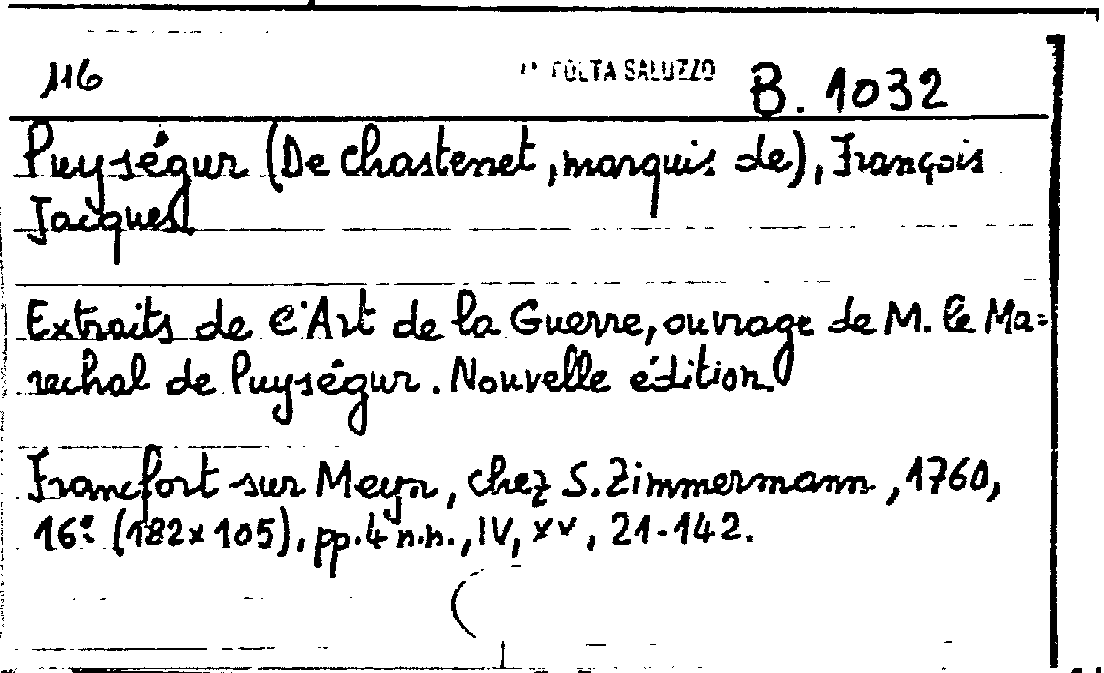 116 SALUZZO B. 1032
Puységur (De Chastenet, marquis de), François
Jacques.
Extraits de l'Art de la Guerre, ouvrage de M. le Ma=
rechal de Puységur. Nouvelle édition.
Francfort sur Meyn, chez S. Zimmermann, 1760,
16º (182x105), pp. 4 n.n., IV, XV, 21-142.